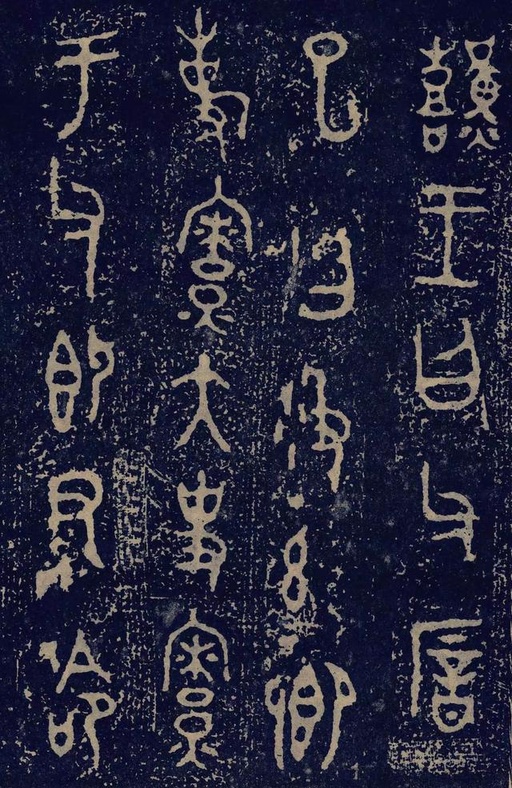 囏王曰父厝
已曰彶茲卿
事寮大史寮
于父即尹命